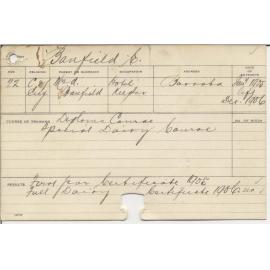 Banfield C.
AGE RELIGION PARENT OR GUARDIAN OCCUPATION ADDRESS
22 C of Eng Wm A. Banfield Hotel Keeper
Dec. 1906
COURSE OF TRAINING Diploma Course
Special Dairy Course
RESULTS First Year Certificate 1905
Full Dairy Certificate 1906